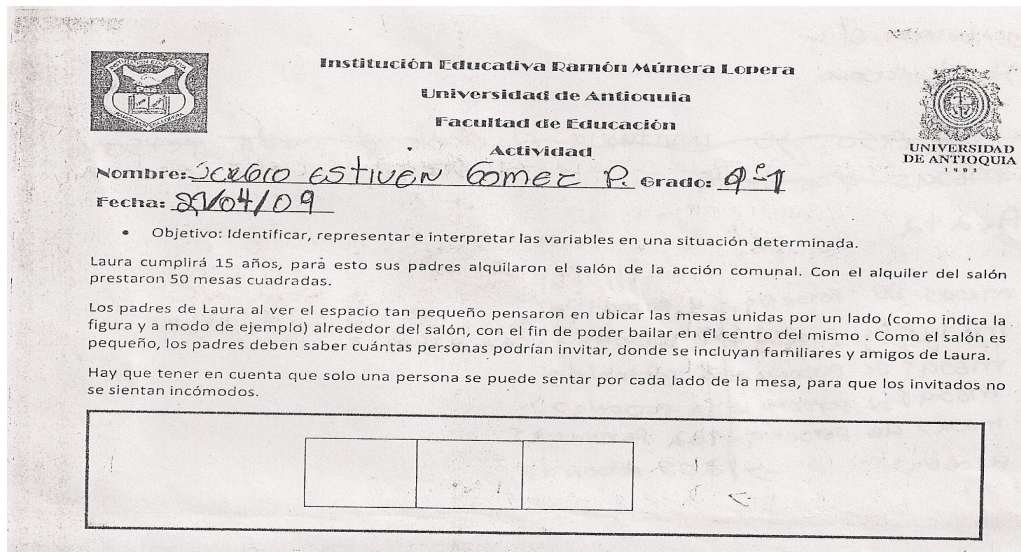 Institución Educativa Ramón Múnera Lopera
Universidad de Antioquia
Facultad de Educación
Actividad
UNIVERSIDAD
DE ANTIOQUIA
1803
Nombre: SERGIO ESTIVEN GOMEZ P. Grado: 9°1
Fecha: 27/04/09
• Objetivo: Identificar, representar e interpretar las variables en una situación determinada.
Laura cumplirá 15 años, para esto sus padres alquilaron el salón de la acción comunal. Con el alquiler del salón
prestaron 50 mesas cuadradas.
Los padres de Laura al ver el espacio tan pequeño pensaron en ubicar las mesas unidas por un lado (como indica la
figura y a modo de ejemplo) alrededor del salón, con el fin de poder bailar en el centro del mismo . Como el salón es
pequeño, los padres deben saber cuántas personas podrían invitar, donde se incluyan familiares y amigos de Laura.
Hay que tener en cuenta que solo una persona se puede sentar por cada lado de la mesa, para que los invitados no
se sientan incómodos.